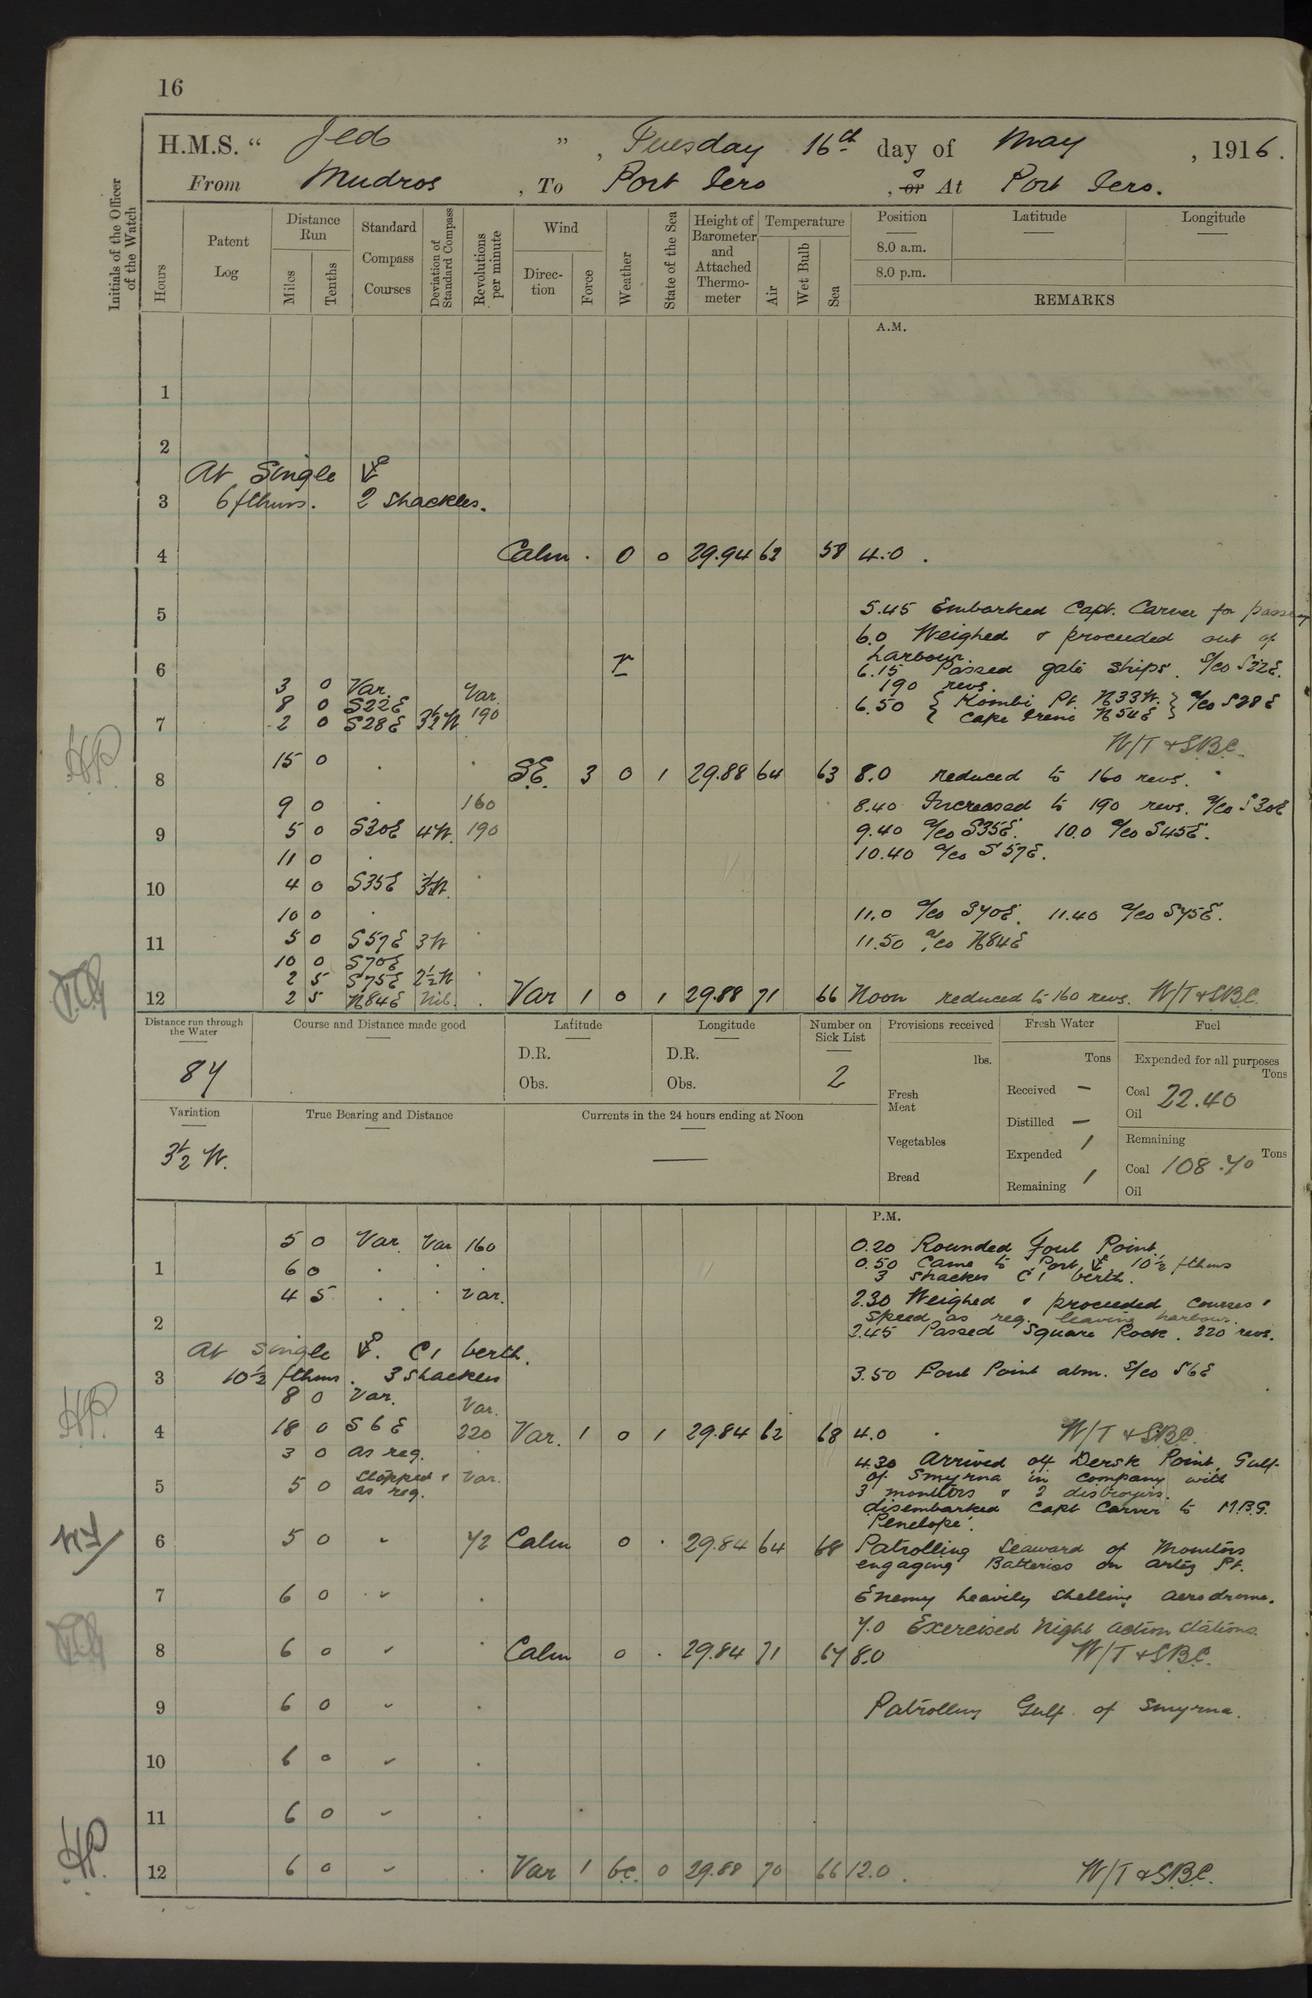 16
H.M.S. " Jed " , Tuesday 16th day of May , 1916.
From Mudros , To Port Iero , or At Port Iero.
Initials of the Officer of the Watch
Hours
Patent Log
Distance Run
Miles
Tenths
Standard Compass Courses
Deviation of Standard Compass
Revolutions per minute
Wind
Direction
Force
Weather
State of the Sea
Height of Barometer and Attached Thermometer
Temperature
Air
Wet Bulb
Sea
Position
Latitude
Longitude
8.0 a.m.
8.0 p.m.
REMARKS
A.M.
1
2
At Single
3 6 fthms. 2 shackles.
4 Calm . 0 0 29.94 62 58 4.0 .
5 5.45 Embarked Capt. Carver for
6.0 Weighed & proceeded out of
harbour.
6 6.15 Passed gate ships. S/Co S22E.
190 revs.
3 0 Var. Var.
8 0 S22E
6.50 { Kombi Pt. N33W. } a/co S28E
{ Cape Irene N54E }
7 2 0 S28E 3½W 190
W/T & S.B.C.
15 0 . .
8 S.E. 3 0 1 29.88 64 63 8.0 reduced to 160 revs.
9 0 . 160 8.40 Increased to 190 revs. a/co S30E
9 5 0 S30E 4W. 190 9.40 a/co S35E. 10.0 a/co S45E.
11 0 . 10.40 a/co S57E.
10 4 0 S35E 3½W.
10 0 . 11.0 a/co S70E. 11.40 a/co S75E.
11 5 0 S57E 3W 11.50 a/co N84E
10 0 S70E
2 5 S75E 2½W
12 2 5 N84E Nil. . Var 1 0 1 29.88 71 66 Noon reduced to 160 revs. W/T & S.B.C.
Distance run through the Water
87
Course and Distance made good
Latitude
D.R.
Obs.
Longitude
D.R.
Obs.
Number on Sick List
2
Provisions received
lbs.
Fresh Meat
Vegetables
Bread
Fresh Water
Tons
Received —
Distilled —
Expended 1
Remaining 1
Fuel
Expended for all purposes
Tons
Coal 22.40
Oil
Remaining
Tons
Coal 108.70
Oil
Variation
3½ W.
True Bearing and Distance
Currents in the 24 hours ending at Noon
—
P.M.
5 0 Var. Var 160 0.20 Rounded Foul Point.
1 6 0 . . . 0.50 Came to Port 10½ fthms
3 shackles C1 berth.
4 5 . . Var. 2.30 Weighed & proceeded, courses &
2 speed as req. leaving harbour.
2.45 Passed Square Rock. 220 revs.
At single C1 berth.
3 10½ fthms. 3 shackles 3.50 Foul Point abm. S/co S6E
8 0 Var. Var.
4 18 0 S6E 220 Var. 1 0 1 29.84 62 68 4.0 . W/T & S.B.C.
3 0 as req. . 4.30 Arrived off Dersk Point, Gulf
of Smyrna in company with
5 5 0 Stopped & as req. Var. 3 monitors & 2 distroyers.
disembarked Capt Carver to M.B.G.
'Penelope'.
6 5 0 " 72 Calm 0 . 29.84 64 68 Patrolling Seaward of Monitors
engaging Batteries on Pt.
7 6 0 " . Enemy heavily shelling aerodrome.
7.0 Exercised Night action stations.
8 6 0 " . Calm 0 . 29.84 71 67 8.0 W/T & S.B.C.
9 6 0 " . Patrolling Gulf of Smyrna.
10 6 0 " .
11 6 0 " .
12 6 0 " . Var 1 b.c. 0 29.88 70 66 12.0 . W/T & S.B.C.